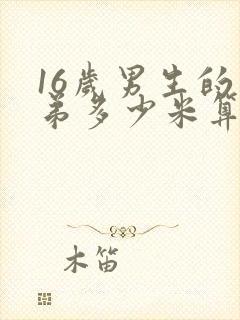 16岁男生的
弟多少米算
木笛